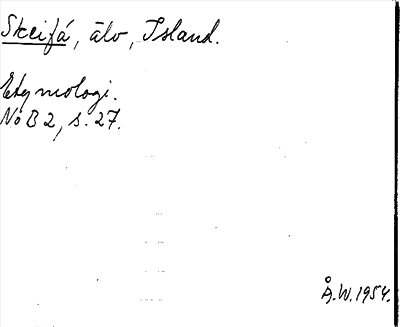 Skeifá, älv, Island.
Etymologi.
NoB 2, s. 27.
Å.W. 1954.